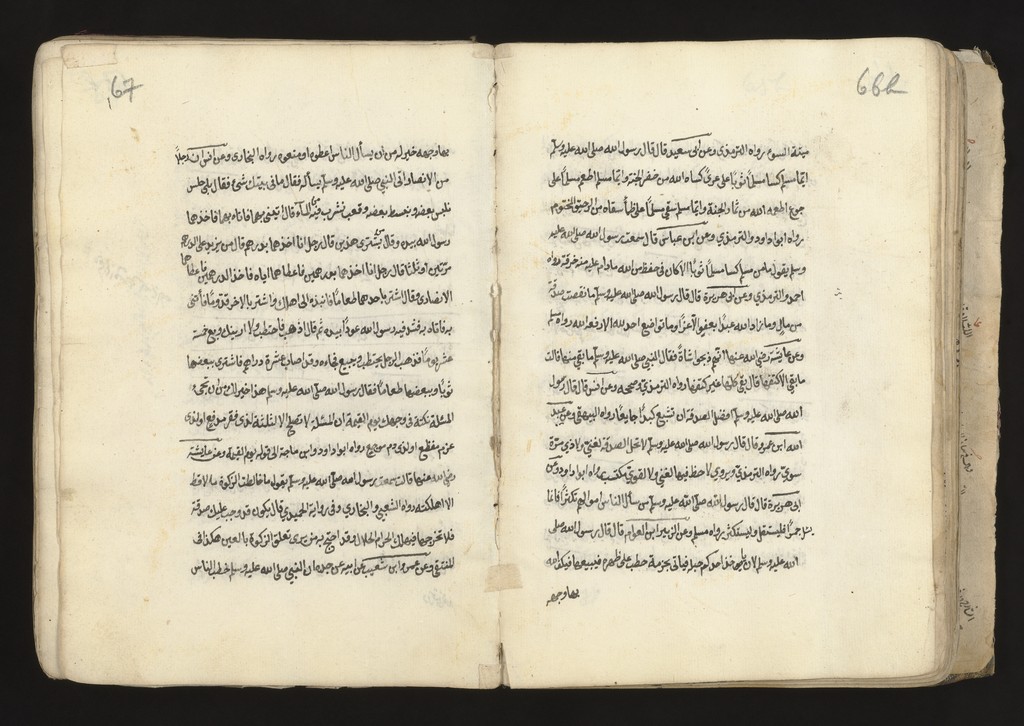 66b
ميتة السوء رواه الترمذي وعن ابى سعيد قال قال رسول الله صلى الله عليه وسلم
ايما مسلم كسا مسلماً ثوبا على عرىً كساه الله من خضر الجنة وايما مسلم اطعم مسلما على
جوع اطعمه الله من ثمار الجنة وايما مسلم سقى مسلما على ظمأ سقاه من الرحيق المختوم
رواه ابو داود والترمذي وعن ابن عباس قال سمعت رسول الله صلى الله عليه
وسلم يقول ما من مسلم كسا مسلما ثوبا الا كان فى حفظ من الله ما دام عليه منه خرقة رواه
احمد والترمذي وعن ابى هريرة قال قال رسول الله صلى الله عليه وسلم ما نقصت صدقة
من مال وما زاد الله عبدا بعفو الا عزا وما تواضع احد لله الا رفعه الله رواه مسلم
وعن عايشة رضى الله عنها انهم ذبحوا شاة فقال النبى صلى الله عليه وسلم ما بقى منها قالت
ما بقى الا كتفها قال بقى كلها غير كتفها رواه الترمذي وصححه وعن انس قال قال رسول
الله صلى الله عليه وسلم افضل الصدقة ان تشبع كبدا جايعا رواه البيهقى وعن عبد
الله ابن عمرو قال قال رسول الله صلى الله عليه وسلم لا تحل الصدقة لغنى ولا ذى مرة
سوى رواه الترمذي ويروى لا حظ فيها لغنى ولا لقوى مكتسب رواه ابو داود وعن
ابى هريرة قال قال رسول الله صلى الله عليه وسلم من سأل الناس اموالهم تكثرا فانما
يسئل جمرا فليستقل او ليستكثر رواه مسلم وعن الزبير ابن العوام قال قال رسول الله صلى
الله عليه وسلم لان يأخذ احدكم حبله فياتى بحزمة حطب على ظهره فيبيعها فيكف الله
بها وجهه
67
بها وجهه خير له من ان يسأل الناس اعطوه او منعوه رواه البخارى وعن انس ان رجلاً
من الانصار اتى النبى صلى الله عليه وسلم يسأله فقال ما فى بيتك شىء فقال بلى حلس
نلبس بعضه ونبسط بعضه وقعب نشرب فيه من الماء قال ائتنى بهما فاتاه بهما فاخذهما
رسول الله بيده وقال من يشترى هذين قال رجل انا اخذهما بدرهم قال من يزيد على الدرهم
مرتين او ثلثا قال رجل انا اخذهما بدرهمين فاعطاهما اياه فاخذ الدرهمين فاعطاهما
الانصارى وقال اشتر باحدهما طعاما فانبذه الى اهلك واشتر بالاخر قدوما فأتنى
به فاتاه به فشد فيه رسول الله عودا بيده ثم قال اذهب فاحتطب ولا ارينك وبع خمسة
عشر يوما فذهب الرجل يحتطب ويبيع فجاءه وقد اصاب عشرة دراهم فاشترى ببعضها
ثوبا وببعضها طعاما فقال رسول الله صلى الله عليه وسلم هذا خير لك من ان تجىء
المسئلة نكتة فى وجهك يوم القيمة ان المسئلة لا تصلح الا لثلثة لذى فقر مدقع او لذى
غرم مفظع او لذى دم موجع رواه ابو داود وابن ماجة الى قوله يوم القيمة وعن عايشة
رضى الله عنها قالت سمعت رسول الله صلى الله عليه وسلم يقول ما خالطت الزكوة مالا قط
الا اهلكته رواه الشافعى والبخارى وفى رواية الحميدى قال يكون قد وجب عليك صدقة
فلا تخرجها فيهلك الحرام الحلال وقد احتج به من يرى تعلق الزكوة بالعين هكذا فى
المنتقى وعن عمرو ابن شعيب عن ابيه عن جده ان النبى صلى الله عليه وسلم خطب الناس